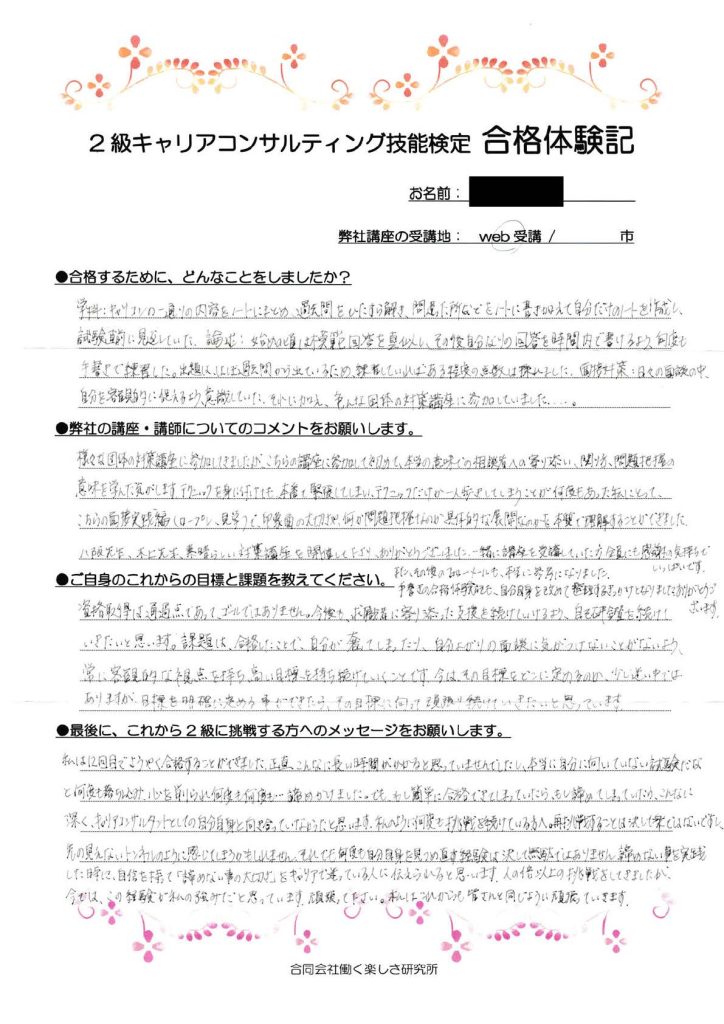 2級キャリアコンサルティング技能検定 合格体験記
お名前：
弊社講座の受講地： web受講 / 市
●合格するために、どんなことをしましたか？
学科：キャリコンの一通りの内容をノートにまとめ、過去問をひたすら解き、間違った所などをノートに書き加えて自分だけのノートを作成し、
試験直前に見返していた。論述：始めの頃は模範回答を真似し、その後自分なりの回答を時間内で書けるよう、何度も
手書きで練習した。出題も過去問から出ているため、練習していればある程度の点数は採れました。面接対策：日々の面談の中、
自分を客観的に捉えるよう、意識していた。それに加え、色んな団体の対策講座に参加していました・・・・。
●弊社の講座・講師についてのコメントをお願いします。
様々な団体の対策講座に参加してきましたが、こちらの講座に参加して初めて、本当の意味での相談者への寄り添い、関り方、問題把握の
意味を学んだ気がします。テクニックを身に付けても、本番で緊張してしまい、テクニックだけが一人歩きしてしまうことが何度もあった私にとって、
こちらの面接実践編（ロープレ、見学）で、印象面の大切さや、何が問題把握なのか、具体的な展開なのかを本質で理解することができました。
八阪先生、木上先生、素晴らしい対策講座を開催して下さり、ありがとうございました。一緒に講座を受講していた方全員にも感謝の気持ちで
いっぱいです。
また、その後のメールも、本当に参考になりました。
手書きの合格体験記も、自分自身を改めて整理するきっかけとなりましたありがとうご
ざいます。
●ご自身のこれからの目標と課題を教えてください。
資格取得は、通過点であって、ゴールではありません。今後も、求職者に寄り添った支援を続けていけるよう、自己研鑽を続けて
いきたいと思います。課題は、合格したことで、自分が奢ってしまったり、自分よがりの面談に気がつけないことがないよう、
常に客観的な視点を持ち、高い目標を持ち続けていくことです。今は、その目標をどこに定めるのか、少し迷い中では
ありますが、目標を明確に定める事ができたら、その目標に向って頑張り続けていきたいと思っています。
●最後に、これから2級に挑戦する方へのメッセージをお願いします。
私は12回目でようやく合格することができました。正直、こんなに長い時間がかかると思っていませんでしたし、本当に自分に向いていない試験だな
と何度も落ち込み、心を削られ何度も何度も…諦めかけました。でも、もし簡単に合格できてしまっていたら、もし諦めてしまっていたら、こんなに
深く、キャリアコンサルタントとしての自分自身と向き合っていなかったと思います。私のように何度も挑戦を続けている方へ。再挑戦することは決して楽ではないですし、
先の見えないトンネルのように感じてしまうかもしれません。それでも何度も自分自身を見つめ直す経験は決して無駄ではありません。諦めない事を実践
した時に、自信を持って「諦めない事の大切さ」をキャリアで迷っている人に伝えられると思います。人の倍以上の挑戦をしてきましたが、
今では、この経験が私の強みだと思っています。頑張って下さい。私はこれからも皆さんと同じように頑張っていきます。
合同会社働く楽しさ研究所